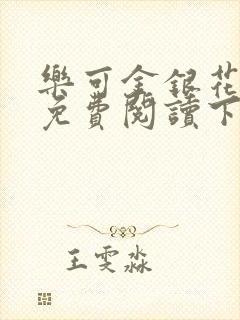 樂可金銀花
免費閱讀下
王雯淼